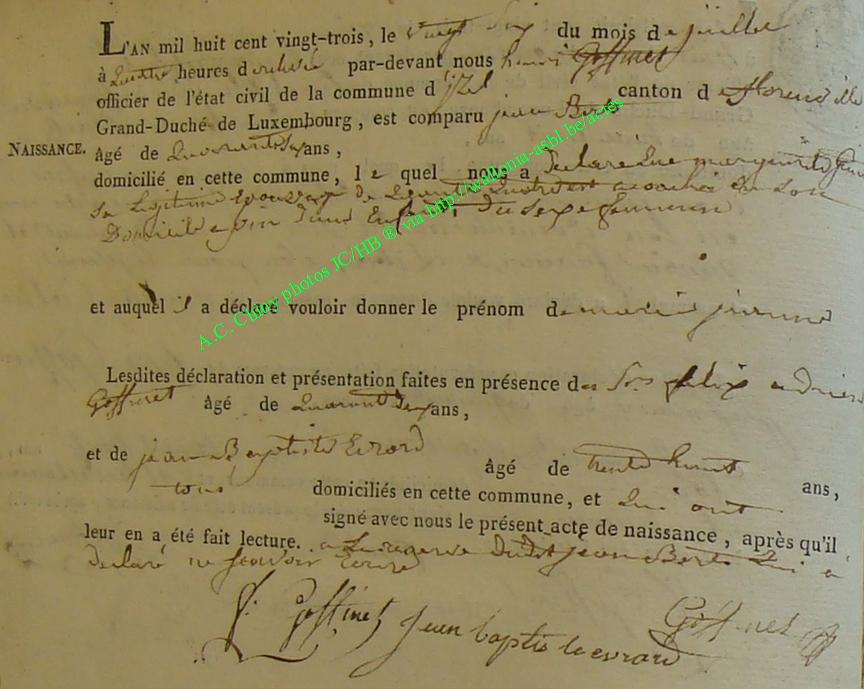 L'AN mil huit cent vingt-trois, le vingt six du mois de juillet
à quatre heures de relevé par-devant nous henri Goffinet
officier de l'état civil de la commune d'izel canton de florenville
Grand-Duché de Luxembourg, est comparu jean
NAISSANCE. âgé de quarante ans,
domicilié en cette commune, le quel nous a declaré que marguerite
sa legitime epouse de est acouchée en son
Domicile d'un Enfant du sexe feminin
et auquel il a déclaré vouloir donner le prénom de marie jeanne
Lesdites déclaration et présentation faites en présence des Srs felix adrien
Goffinet âgé de quarante ans,
et de jean Baptiste Evrard âgé de trente huit ans,
tous domiciliés en cette commune, et qui ont
signé avec nous le présent acte de naissance, après qu'il
leur en a été fait lecture. a la reserve dudit jean qui a
declaré ne scavoir Ecrire
f. Goffinet jean baptiste evrard Goffinet
A.C. Chiny photos JC/HB ® via http://wallonia-asbl.be/actes